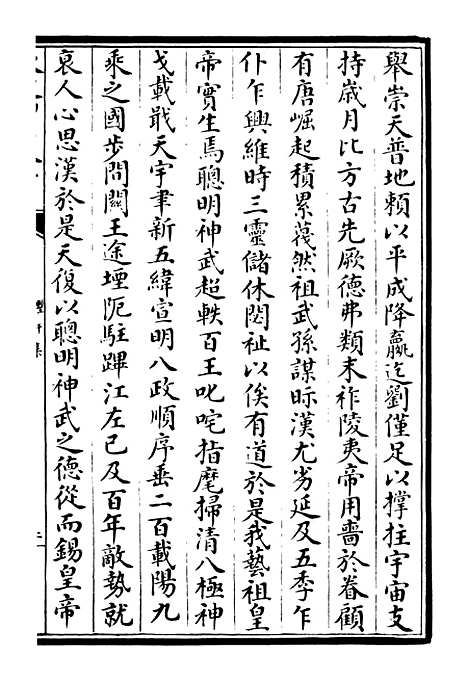 舉崇天普地頼以平成降嬴迄劉僅足以撑拄宇宙支
持歳月比方古先厥德弗類末祚陵夷帝用嗇於眷顧
有唐崛起積累蔑然祖武孫謀眎漢尤劣延及五季乍
仆乍興維時三靈儲休閟祉以俟有道於是我藝祖皇
帝實生焉聰明神武超軼百王叱咤指麾掃清八極神
戈載戢天宇聿新五緯宣明八政順序垂二百載陽九
乘之國步問闗王途堙阨駐蹕江左已及百年敵勢就
衰人心思漢於是天復以聰明神武之德從而錫皇帝